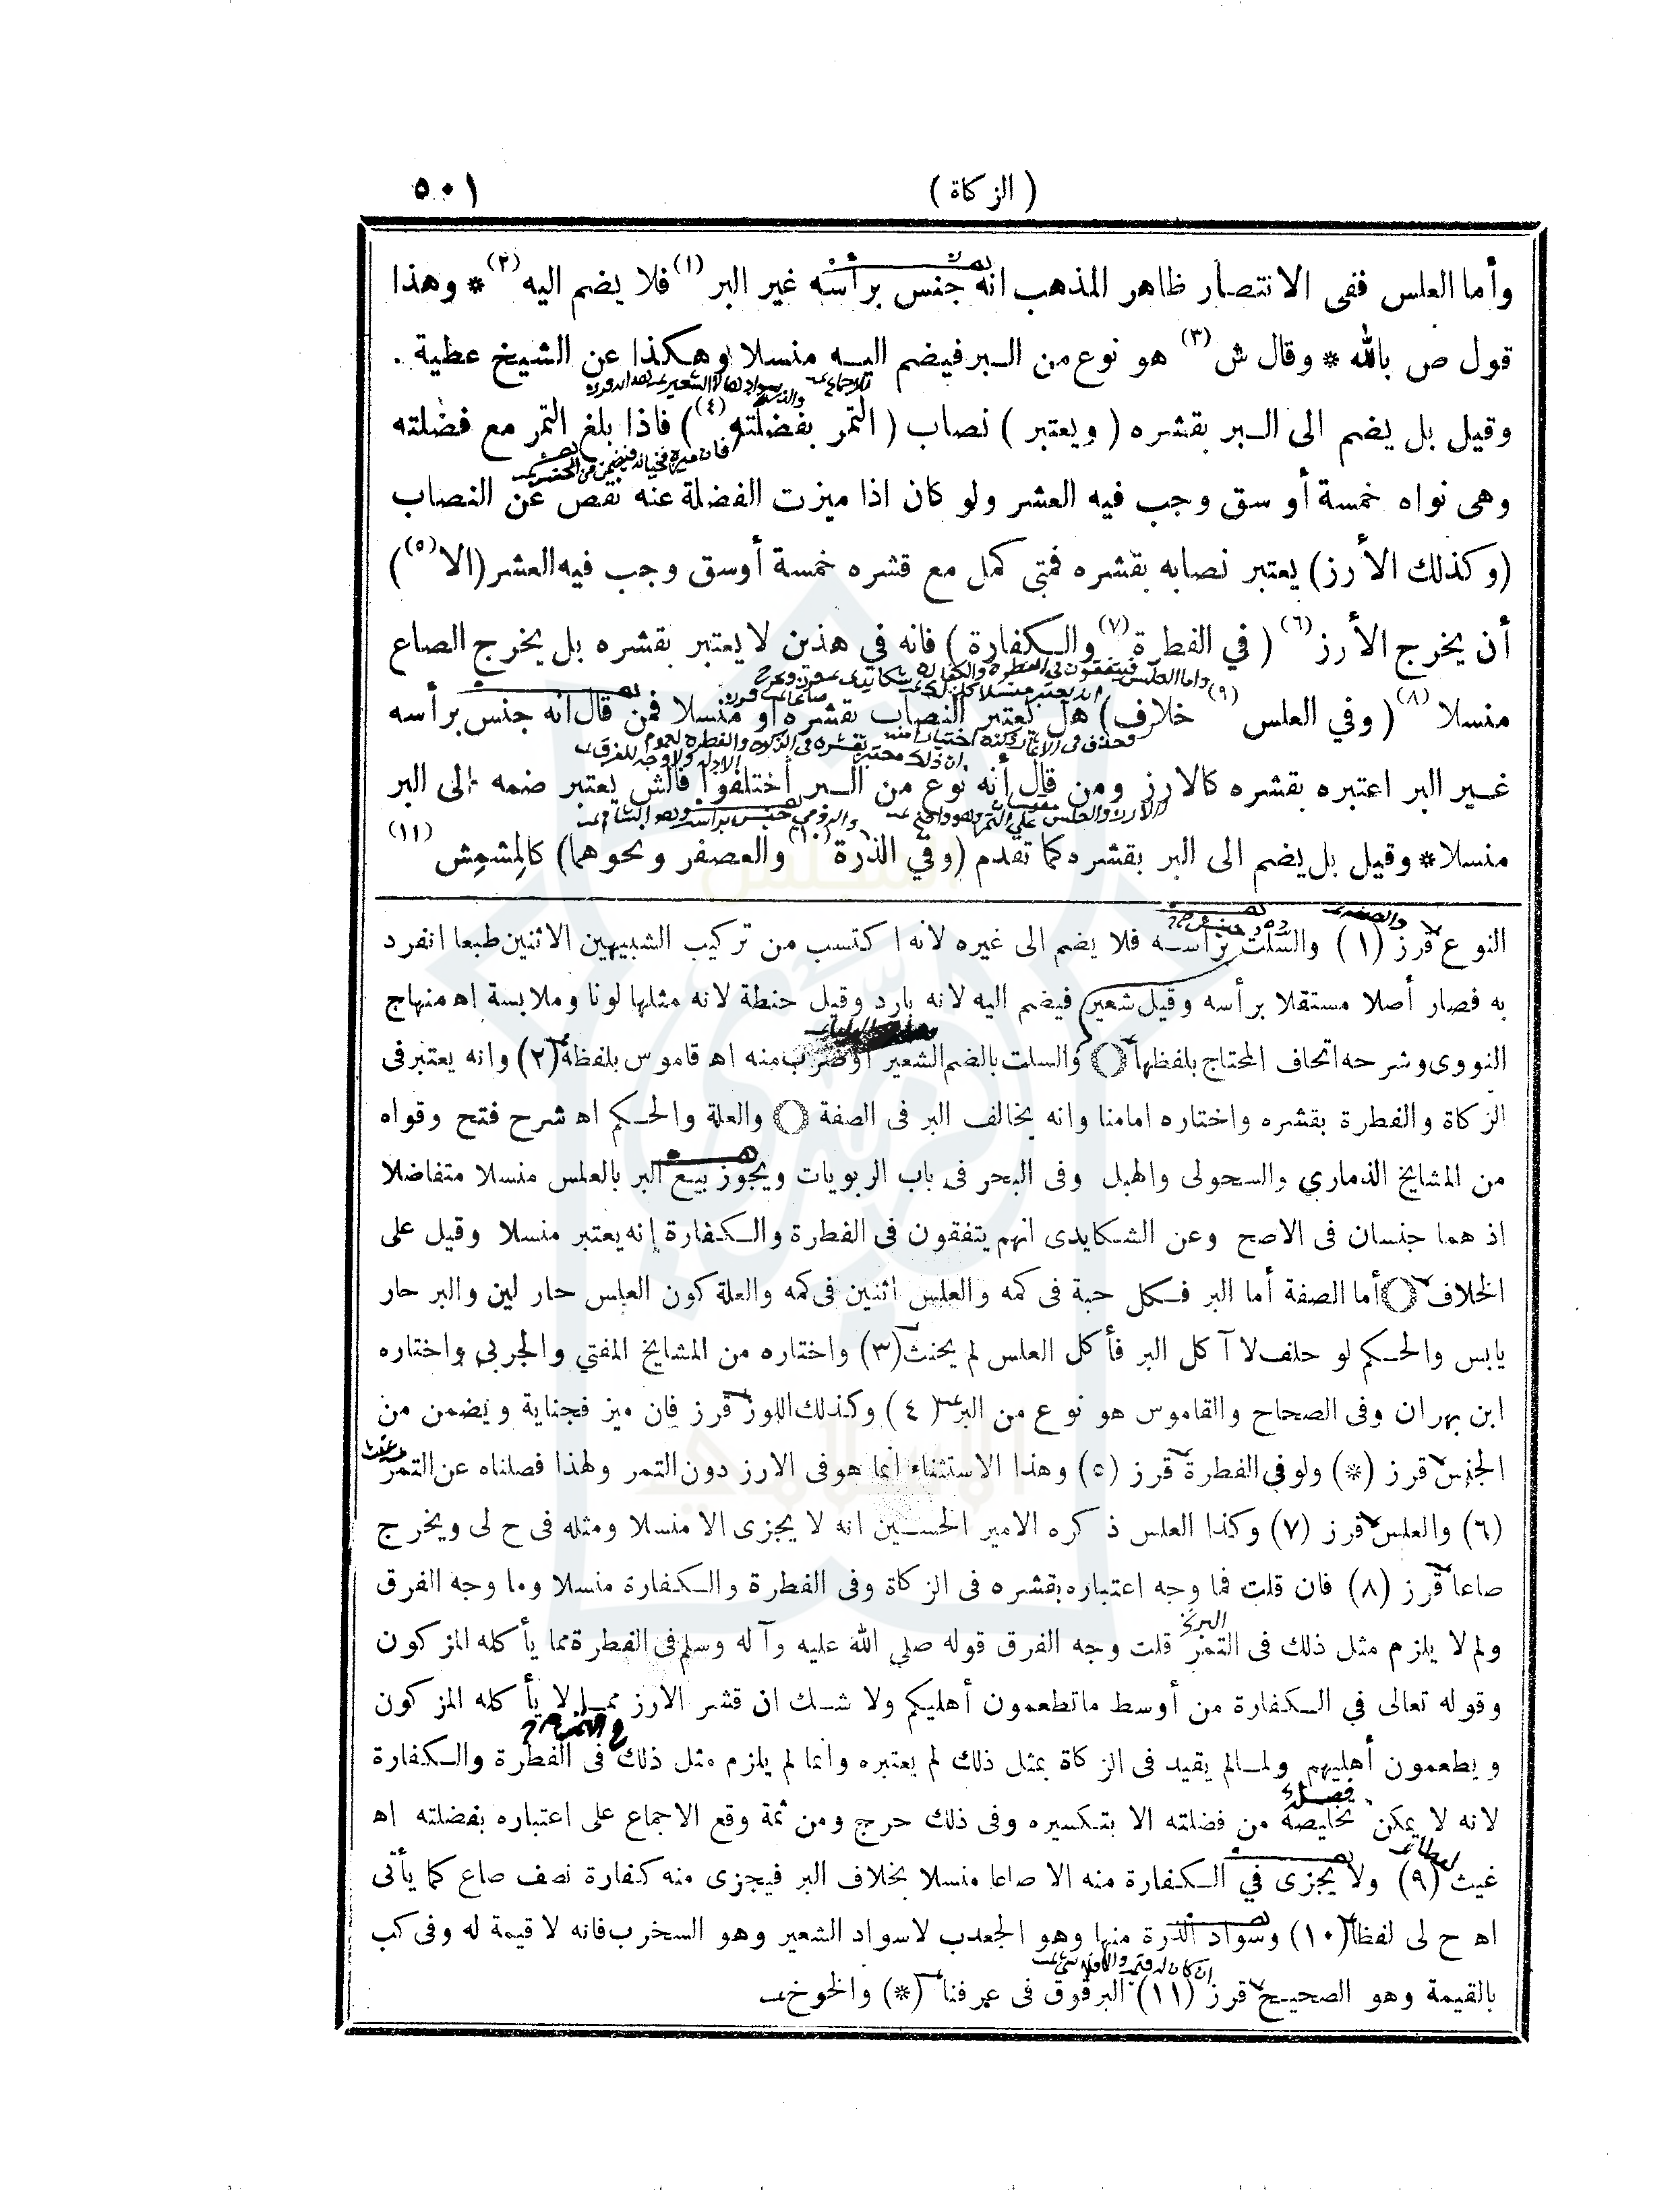 (الزكاة)
٥٠١
وأما العلس ففى الانتصار ظاهر المذهب انه جنس برأسه غير البر (١) فلا يضم اليه (٢) * وهذا
قول ص بالله * وقال ش (٣) هو نوع من البر فيضم اليه منسلا وهكذا عن الشيخ عطية .
وقيل بل يضم الى البر بقشره ( ويعتبر ) نصاب ( التمر بفضلته (٤) ) فاذا بلغ التمر مع فضلته
وهى نواه خمسة أوسق وجب فيه العشر ولو كان اذا ميزت الفضلة عنه نقص عن النصاب
(وكذلك الأرز) يعتبر نصابه بقشره فمتى كمل مع قشره خمسة أوسق وجب فيه العشر (الا (٥) )
أن يخرج الأرز (٦) ( في الفطرة (٧) والكفارة ) فانه في هذين لا يعتبر بقشره بل يخرج الصاع
منسلا (٨) ( وفي العلس (٩) خلاف) هل يعتبر النصاب بقشره أو منسلا فمن قال انه جنس برأسه
غير البر اعتبره بقشره كالارز ومن قال أنه نوع من البر اختلفوا فالش يعتبر ضمه الى البر
منسلا * وقيل بل يضم الى البر بقشره كما تقدم (وفي الذرة (١٠) والعصفر ونحوهما) كالمشمش (١١)
النوع قرز (١) والسلت برأسه فلا يضم الى غيره لانه اكتسب من تركيب الشبيهين الاثنين طبعا انفرد
به فصار أصلا مستقلا برأسه وقيل شعير فيضم اليه لانه بارد وقيل حنطة لانه مثلها لونا وملابسة اه منهاج
النووى وشرحه اتحاف المحتاج بلفظها والسلت بالضم الشعير أو ضرب منه اه قاموس بلفظه (٢) وانه يعتبر فى
الزكاة والفطرة بقشره واختاره امامنا وانه يخالف البر فى الصفة والعلة والحكم اه شرح فتح وقواه
من المشايخ الذماري والسحولى والهبل وفى البحر فى باب الربويات ويجوز بيع البر بالعلس منسلا متفاضلا
اذ هما جنسان فى الاصح وعن الشكايدى انهم يتفقون فى الفطرة والكفارة إنه يعتبر منسلا وقيل على
الخلاف أما الصفة أما البر فكل حبة فى كمه والعلس اثنين فى كمه والعلة كون العلس حار لين والبر حار
يابس والحكم لو حلف لا آكل البر فأكل العلس لم يحنث (٣) واختاره من المشايخ المفتي والجربى واختاره
ابن بهران وفى الصحاح والقاموس هو نوع من البر (٤) وكذلك اللوز قرز فان ميز فجناية ويضمن من
الجنس قرز (*) ولو في الفطرة قرز (٥) وهذا الاستثناء انما هو فى الارز دون التمر ولهذا فصلناه عن التمر
(٦) والعلس قرز (٧) وكذا العلس ذكره الامير الحسين انه لا يجزى الا منسلا ومثله فى ح لى ويخرج
صاعا قرز (٨) فان قلت فما وجه اعتباره بقشره فى الزكاة وفى الفطرة والكفارة منسلا وما وجه الفرق
ولم لا يلزم مثل ذلك فى التمر قلت وجه الفرق قوله صلي الله عليه وآله وسلم فى الفطرة مما يأكله المزكون
وقوله تعالى في الكفارة من أوسط ما تطعمون أهليكم ولا شك ان قشر الارز مما لا يأكله المزكون
ويطعمون أهليهم ولما لم يقيد فى الزكاة بمثل ذلك لم يعتبره وانما لم يلزم مثل ذلك فى الفطرة والكفارة
لانه لا يمكن تخليصه من فضلته الا بتكسيره وفى ذلك حرج ومن ثمة وقع الاجماع على اعتباره بفضلته اه
غيث (٩) ولا يجزى في الكفارة منه الا صاعا منسلا بخلاف البر فيجزى منه كفارة نصف صاع كما يأتى
اه ح لى لفظا (١٠) وسواد الذرة منها وهو الجعدب لا سواد الشعير وهو السخرب فانه لا قيمة له وفى كب
بالقيمة وهو الصحيح قرز (١١) البرقوق فى عرفنا (*) والخوخ